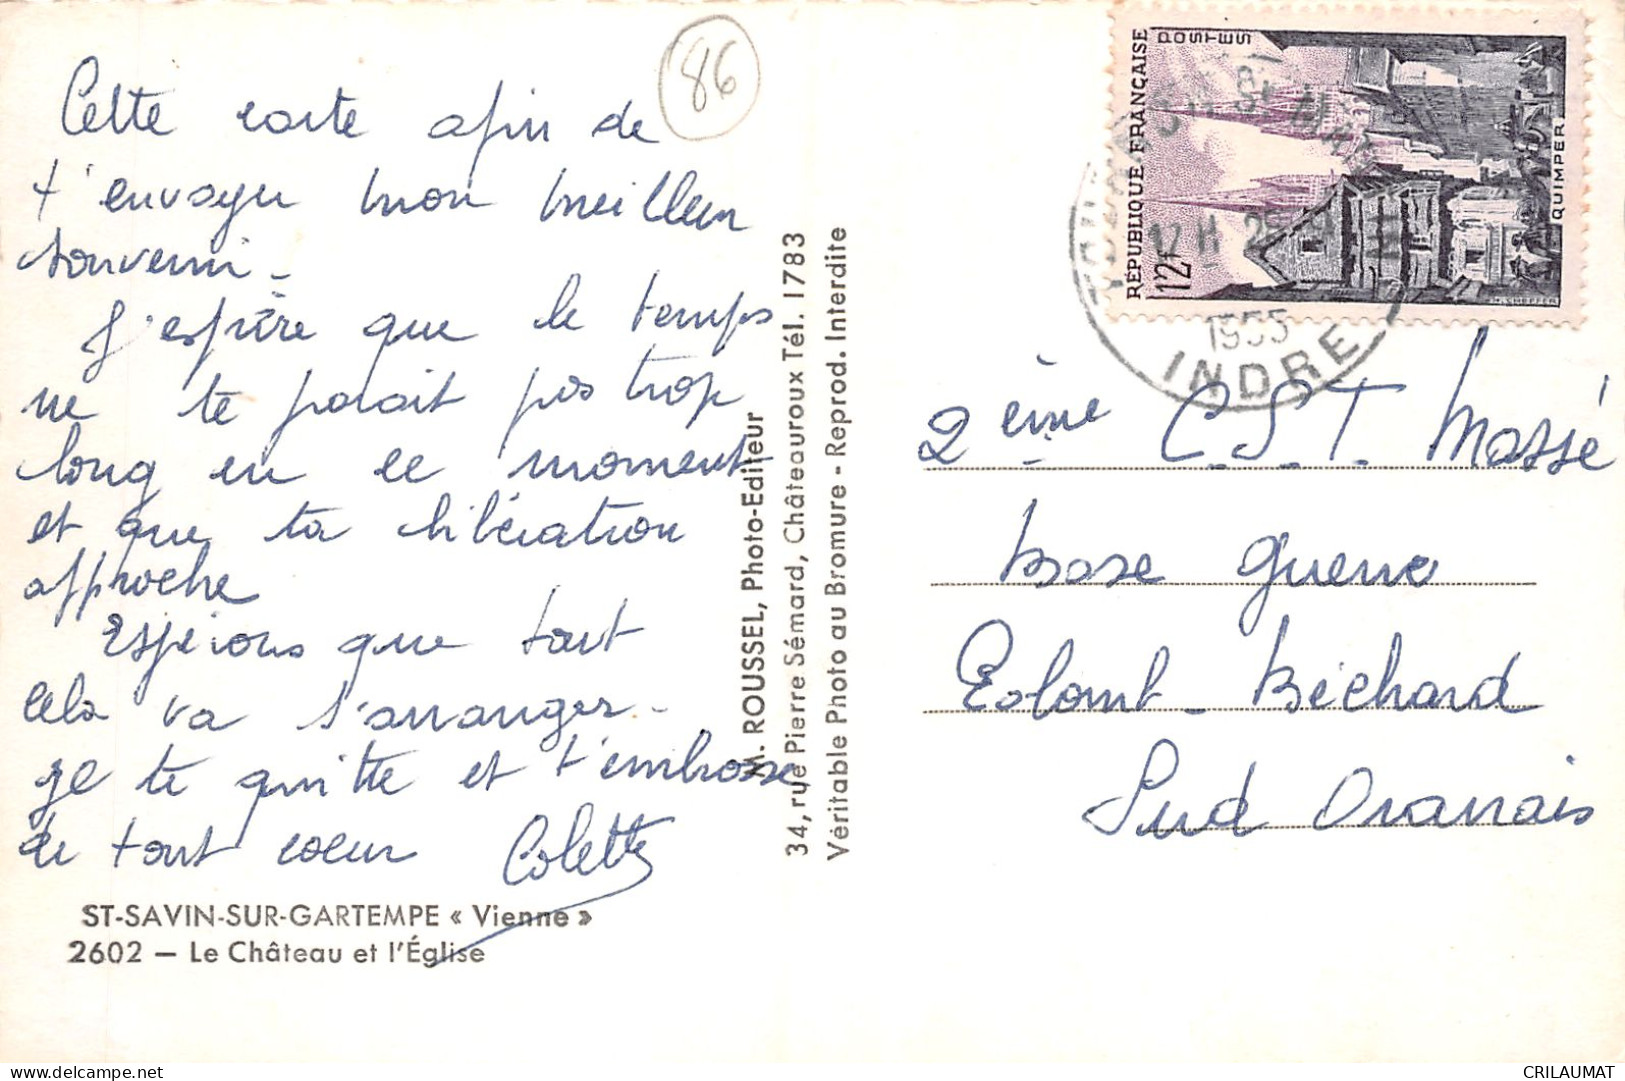 86
Cette carte afin de
t'envoyer mon meilleur
souvenir -
J'espère que le temps
ne te parait pas trop
long en ce moment
et que ta libération
approche
Espérons que tout
cela va s'arranger -
Je te quitte et t'embrasse
de tout coeur Colette
ST-SAVIN-SUR-GARTEMPE « Vienne »
2602 — Le Château et l'Église
M. ROUSSEL, Photo-Editeur
34, rue Pierre Sémard, Châteauroux Tél. 1783
Véritable Photo au Bromure - Reprod. Interdite
RÉPUBLIQUE FRANÇAISE
POSTES
12F
QUIMPER
12 H
1955
INDRE
2ème C.S.T. Massé
base guerre
Colomb-Béchard
Sud Oranais
CRILAUMAT